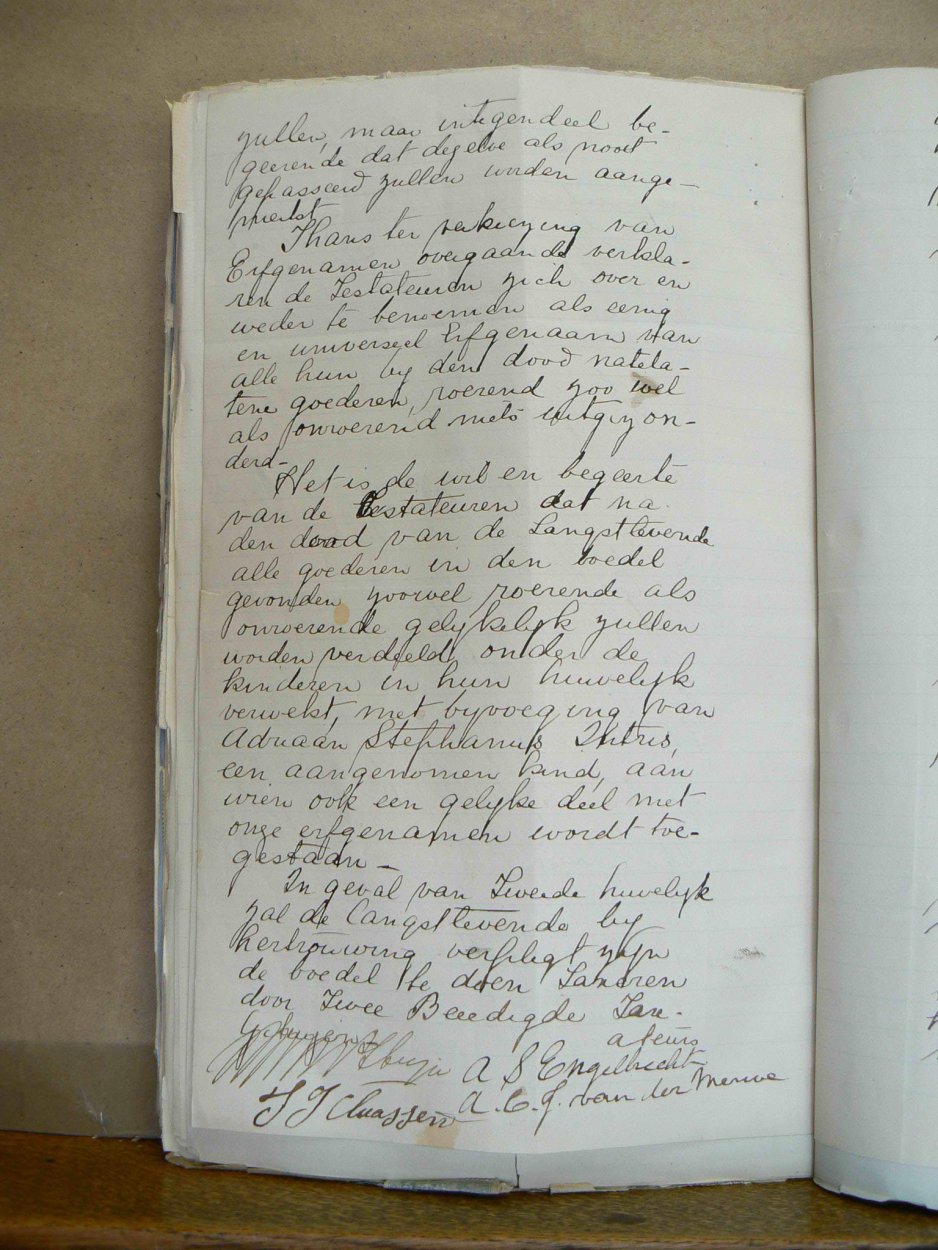 zullen, maar integendeel be-
geerende dat dezelve als nooit
gepasseerd zullen worden aange-
merkt
Thans ter verkiezing van
Erfgenamen overgaande verkla-
ren de Testateuren zich over en
weder te benoemen als eenig
en universeel Erfgenaam van
alle hun by den dood natela-
tene goederen, roerend zoo wel
als onroerend niets uitgezon-
derd-
Het is de wil en begeerte
van de Testateuren dat na
den dood van de Langstlevende
alle goederen in den boedel
gevonden zoowel roerende als
onroerende gelykelyk zullen
worden verdeeld onder de
kinderen in hun huwelyk
verwekt, met byvoeging van
Adriaan Stephanus
een aangenomen kind, aan
wien ook een gelyke deel met
onze erfgenamen wordt toe-
gestaan -
In geval van Tweede huwelyk
zal de Langstlevende by
hertrouwing verpligt zyn
de boedel te doen Taxeren
door Twee Beeedigde Tax-
ateurs
Getuigen
A S Engelbrecht
S J Claassen A. C. J. van der Merwe